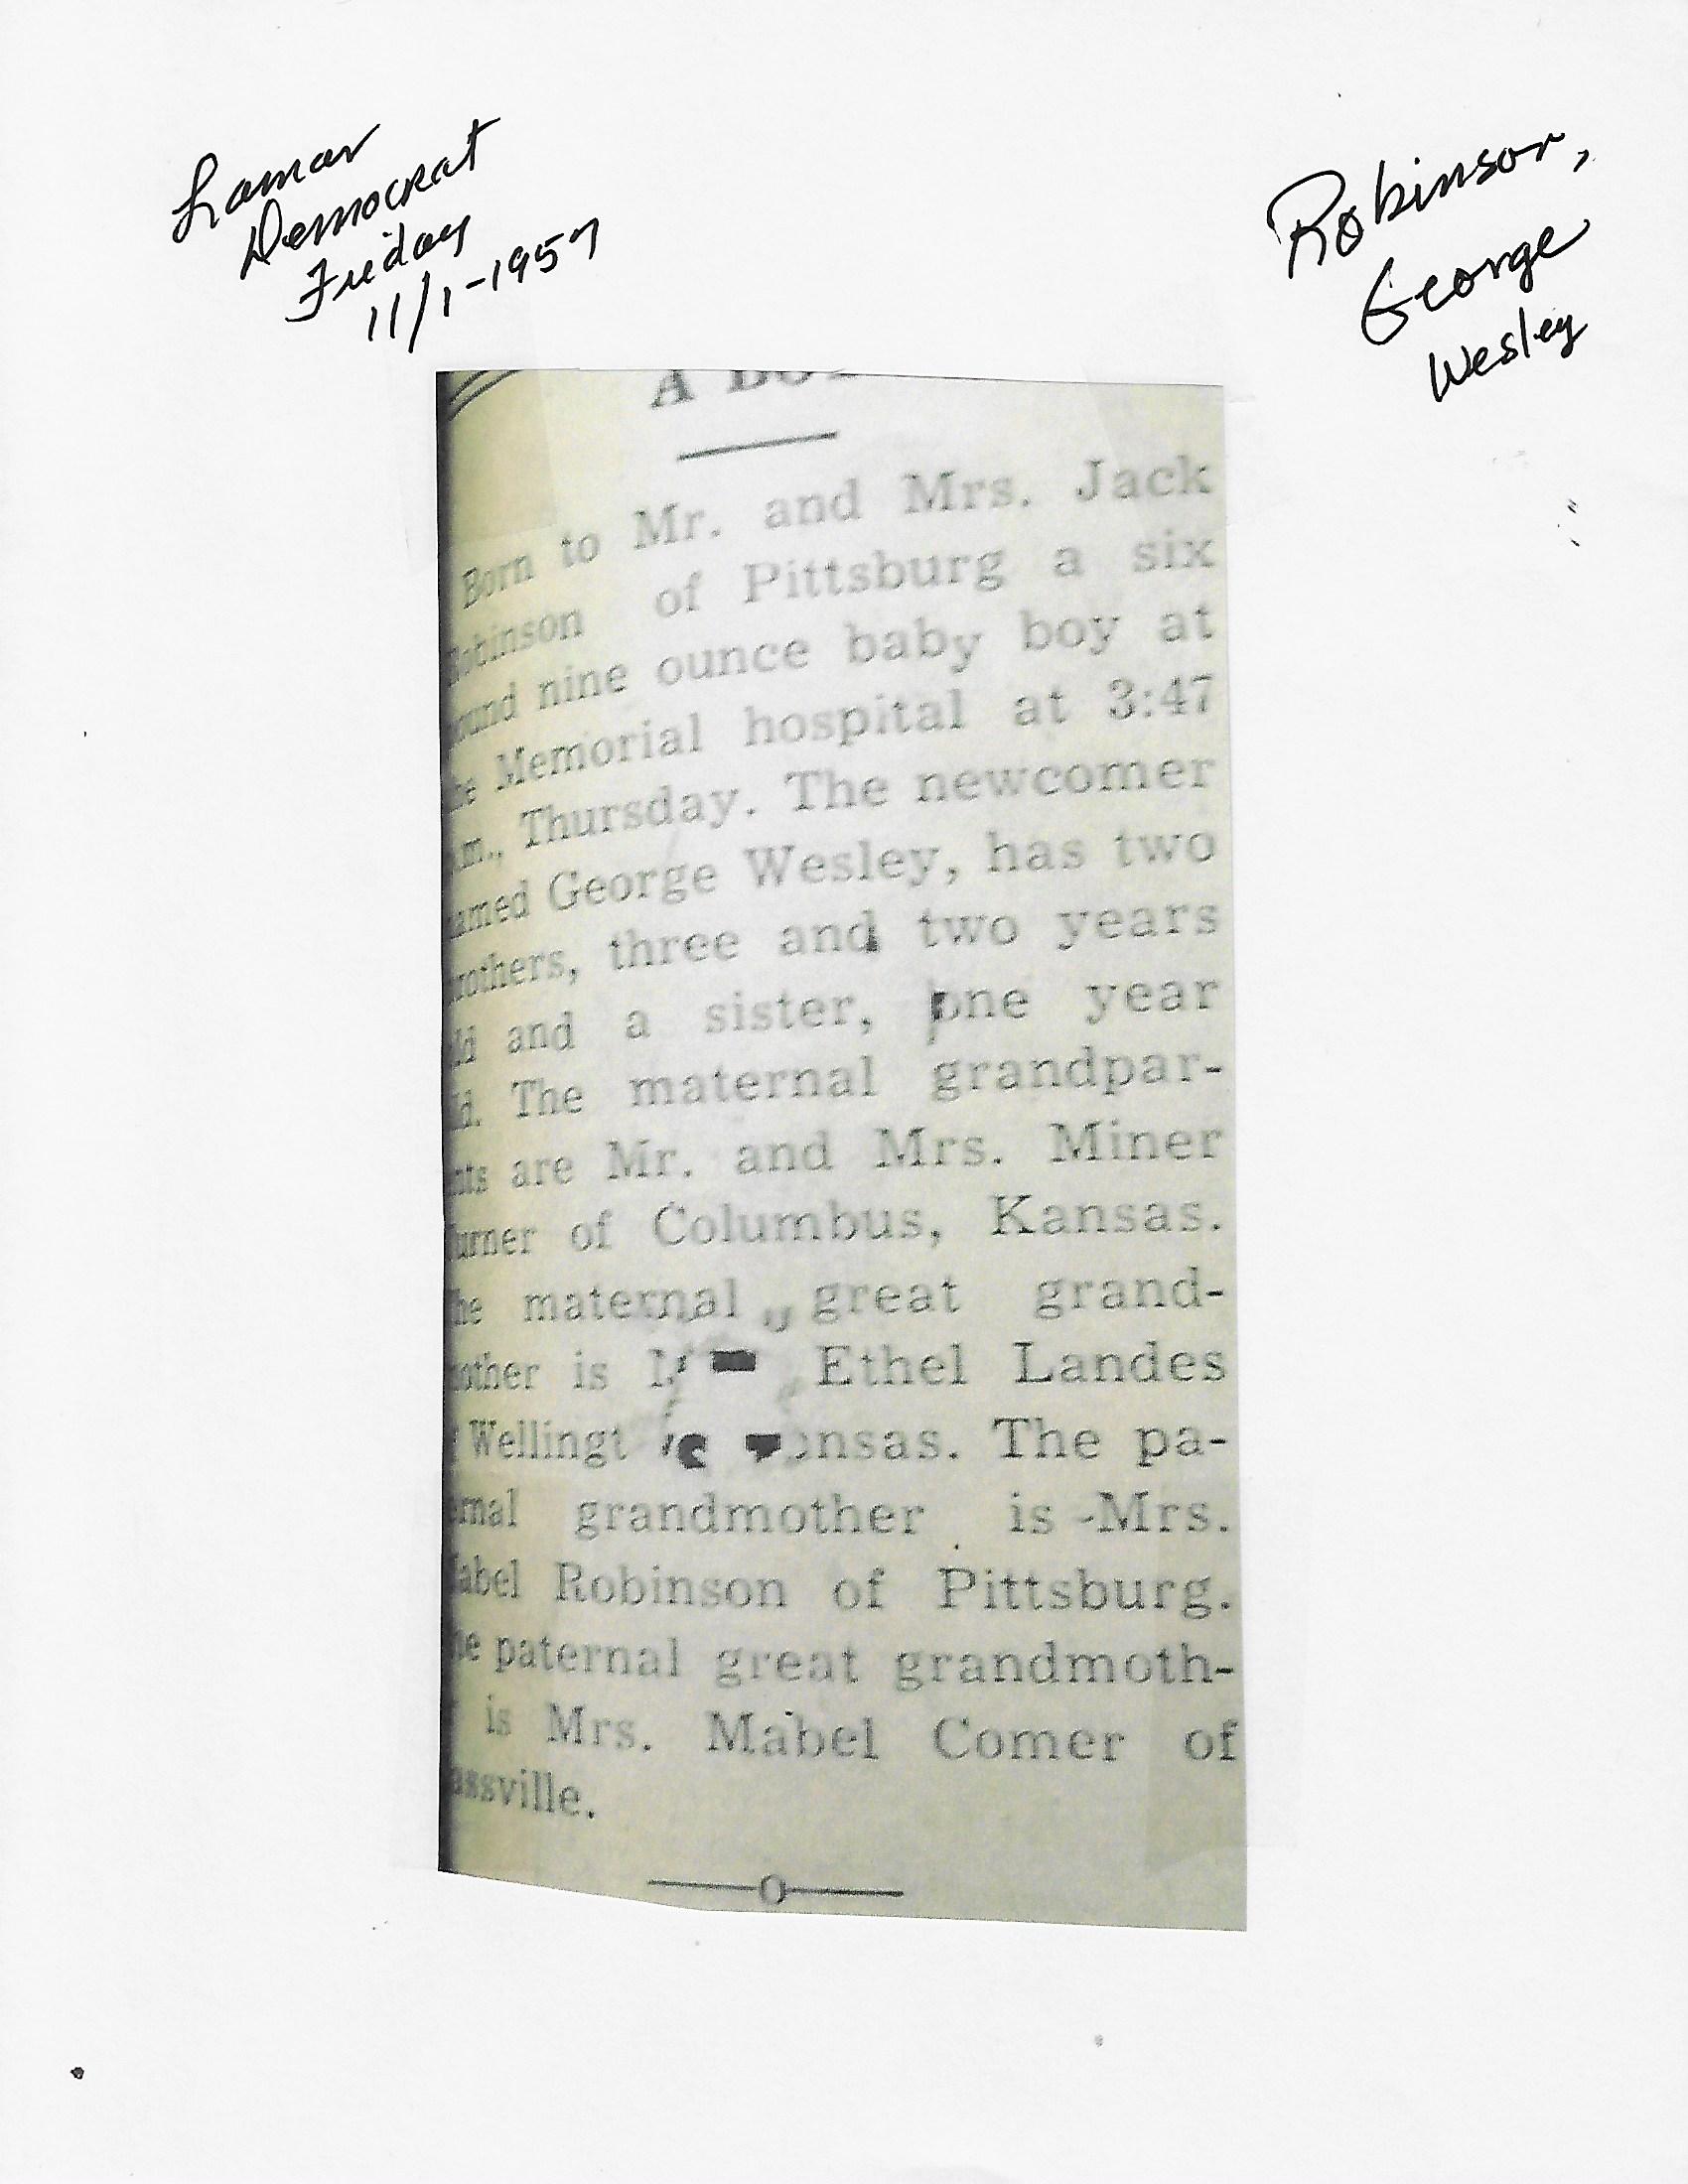 Lamar
Democrat
Friday
11/1-1957
Robinson,
George
Wesley
A BO
Born to Mr. and Mrs. Jack
obinson of Pittsburg a six
ound nine ounce baby boy at
he Memorial hospital at 3:47
.m., Thursday. The newcomer
amed George Wesley, has two
rothers, three and two years
ld and a sister, one year
d. The maternal grandpar-
nts are Mr. and Mrs. Miner
urner of Columbus, Kansas.
he maternal great grand-
other is Ethel Landes
Wellingt nsas. The pa-
ernal grandmother is Mrs.
abel Robinson of Pittsburg.
he paternal great grandmoth-
is Mrs. Mabel Comer of
assville.